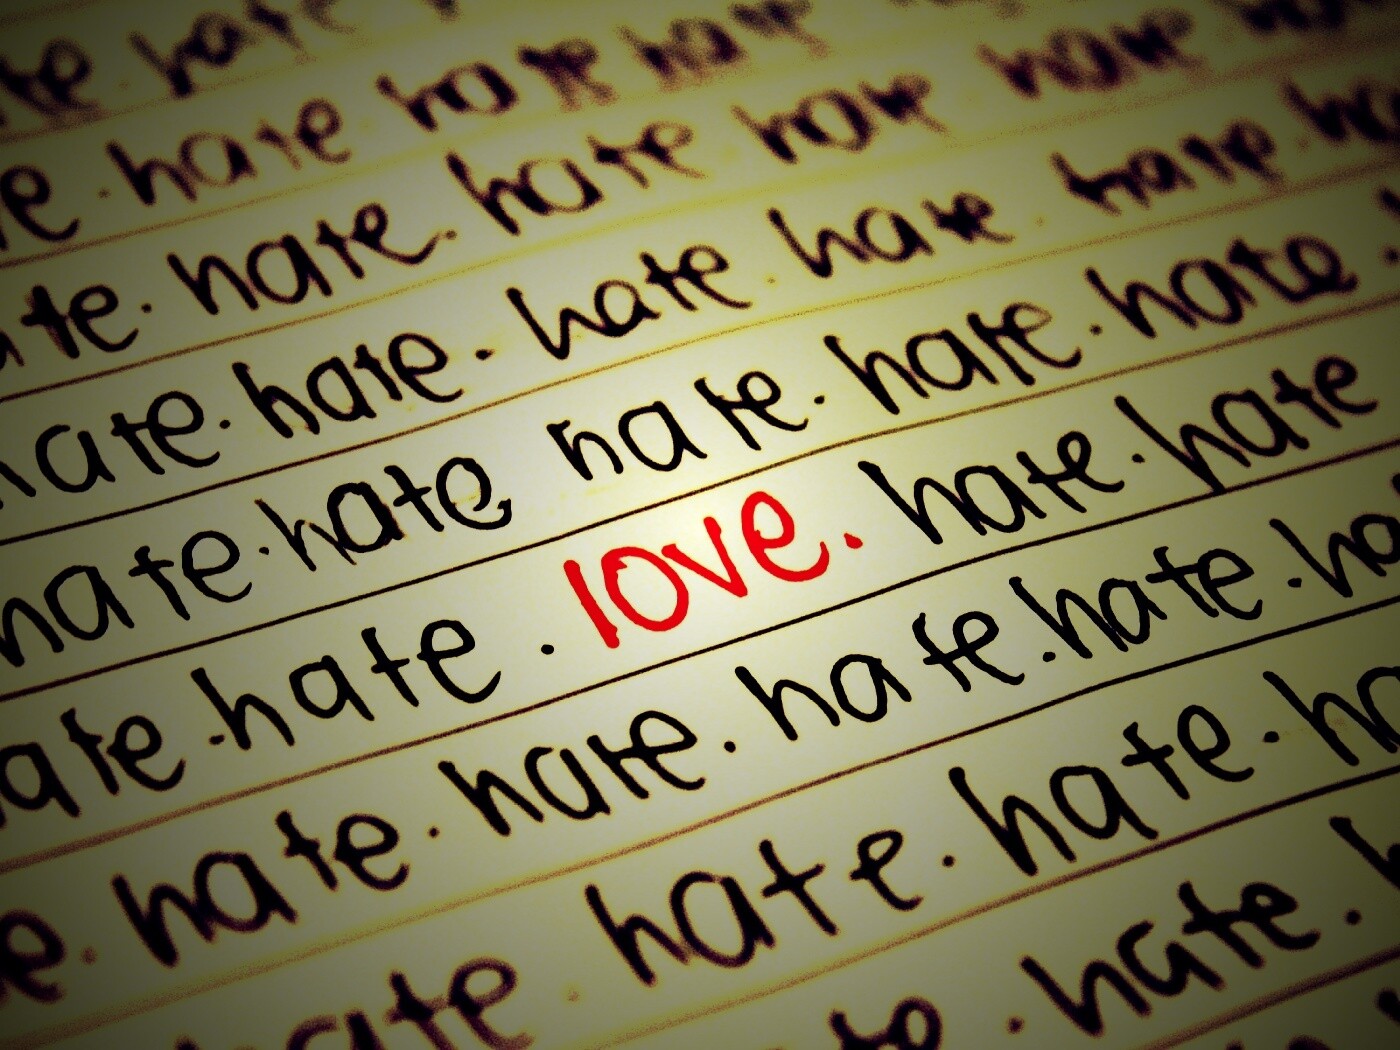 te . hate
e . hate hate hate
te . hate . hate hate hate
hate . hate . hate . hate . hate ha
hate . hate hate . hate . hate .
ate . hate . love . hate . hate
e . hate . hate . hate . hate . ha
ate . hate . hate . ha
. hate . h